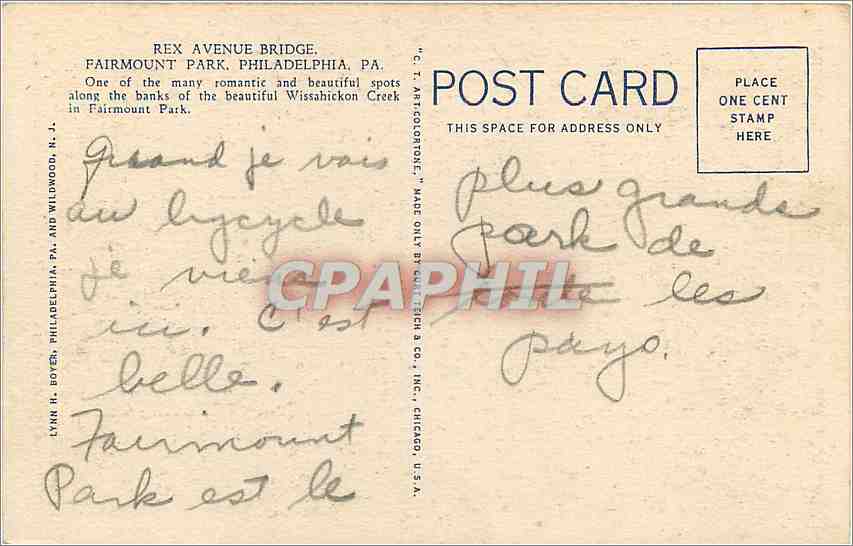 REX AVENUE BRIDGE,
FAIRMOUNT PARK, PHILADELPHIA, PA.
One of the many romantic and beautiful spots
along the banks of the beautiful Wissahickon Creek
in Fairmount Park.
Quand je vais
au bycycle
je viens
ici. C'est
belle.
Fairmount
Park est le
LYNN H. BOYER, PHILADELPHIA, PA. AND WILDWOOD, N. J.
"C. T. ART-COLORTONE," MADE ONLY BY CURT TEICH & CO., INC., CHICAGO, U.S.A.
POST CARD
THIS SPACE FOR ADDRESS ONLY
PLACE
ONE CENT
STAMP
HERE
plus grande
park de
toute les
pays.
CPAPHIL